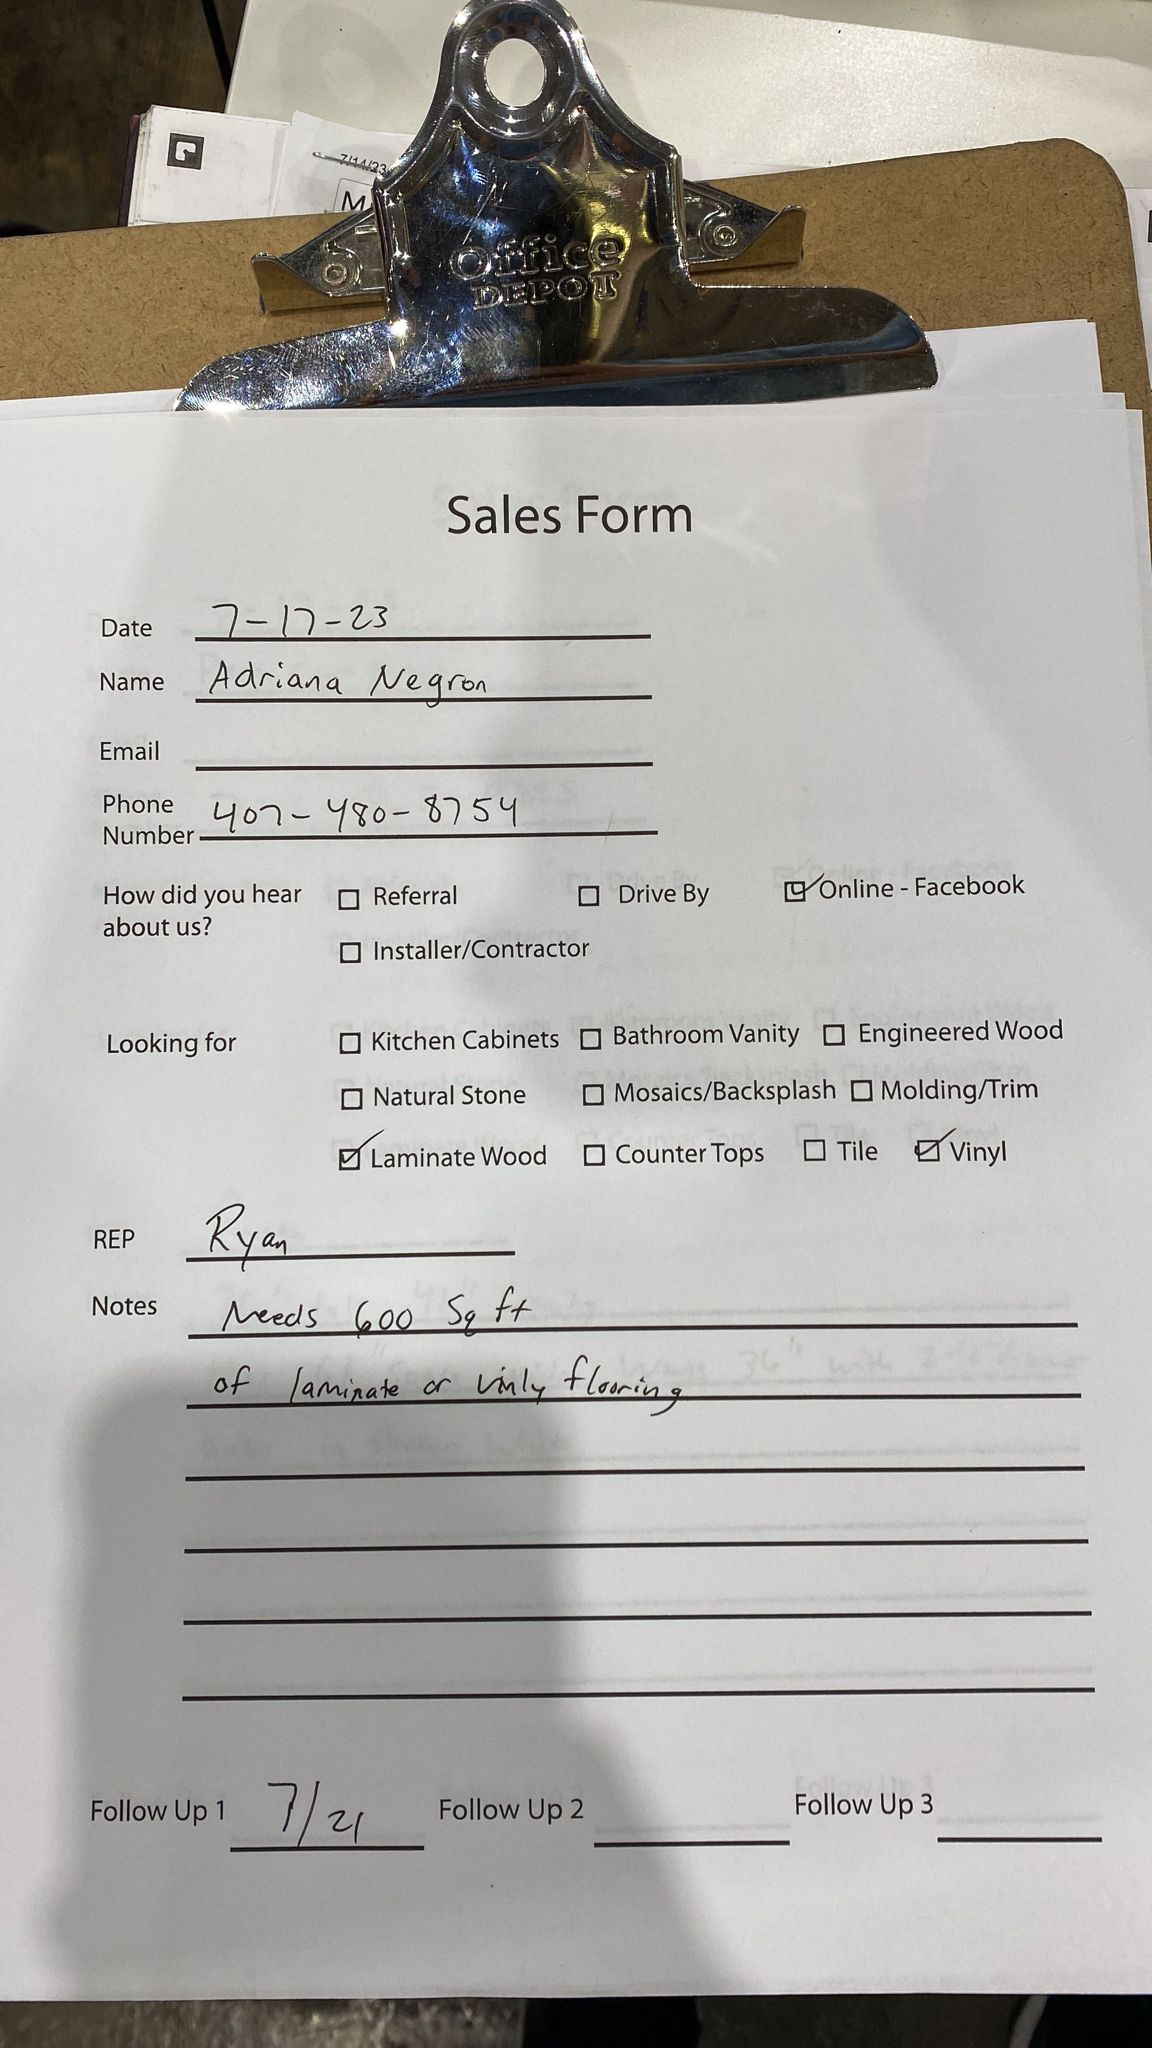 7/14/23
M
Office
DEPOT
Sales Form
Date 7-17-23
Name Adriana Negron
Email
Phone Number 407-480-8754
How did you hear about us? Referral Drive By Online - Facebook
Installer/Contractor
Looking for Kitchen Cabinets Bathroom Vanity Engineered Wood
Natural Stone Mosaics/Backsplash Molding/Trim
Laminate Wood Counter Tops Tile Vinyl
REP Ryan
Notes Needs 600 Sq ft
of laminate or vinly flooring
Follow Up 1 7/21 Follow Up 2 Follow Up 3